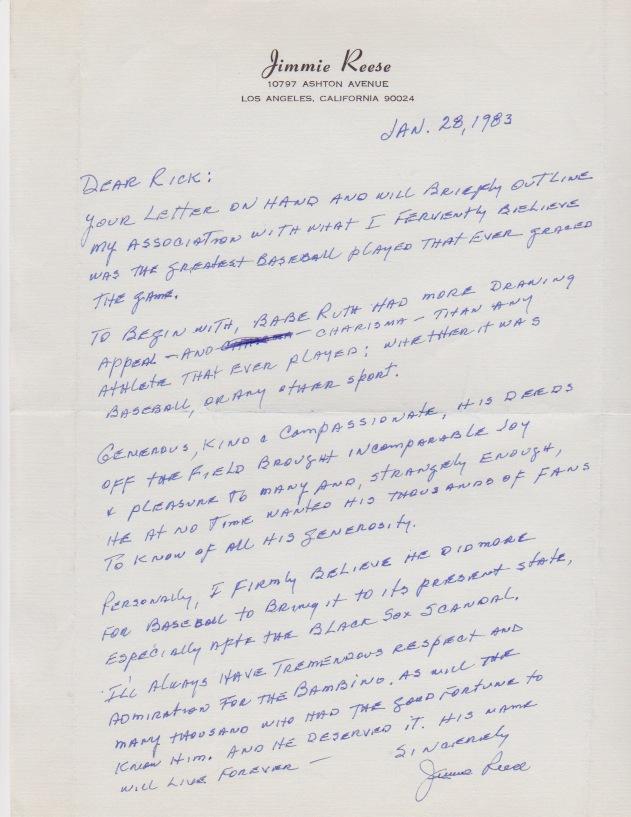 Jimmie Reese
10797 ASHTON AVENUE
LOS ANGELES, CALIFORNIA 90024
JAN. 28, 1983
DEAR RICK:
YOUR LETTER ON HAND AND WILL BRIEFLY OUTLINE
MY ASSOCIATION WITH WHAT I FERVENTLY BELIEVE
WAS THE GREATEST BASEBALL PLAYED THAT EVER GRACED
THE GAME.
TO BEGIN WITH, BABE RUTH HAD MORE DRAWING
APPEAL - AND - CHARISMA - THAN ANY
ATHLETE THAT EVER PLAYED; WHETHER IT WAS
BASEBALL, OR ANY OTHER SPORT.
GENEROUS, KIND & COMPASSIONATE, HIS DEEDS
OFF THE FIELD BROUGHT INCOMPARABLE JOY
& PLEASURE TO MANY AND, STRANGELY ENOUGH,
HE AT NO TIME WANTED HIS THOUSANDS OF FANS
TO KNOW OF ALL HIS GENEROSITY.
PERSONALLY, I FIRMLY BELIEVE HE DID MORE
FOR BASEBALL TO BRING IT TO ITS PRESENT STATE,
ESPECIALLY AFTE THE BLACK SOX SCANDAL.
I'LL ALWAYS HAVE TREMENDOUS RESPECT AND
ADMIRATION FOR THE BAMBINO. AS WILL THE
MANY THOUSAND WHO HAD THE GOOD FORTUNE TO
KNOW HIM. AND HE DESERVED IT. HIS NAME
WILL LIVE FOREVER -
SINCERELY
Jimmie Reese